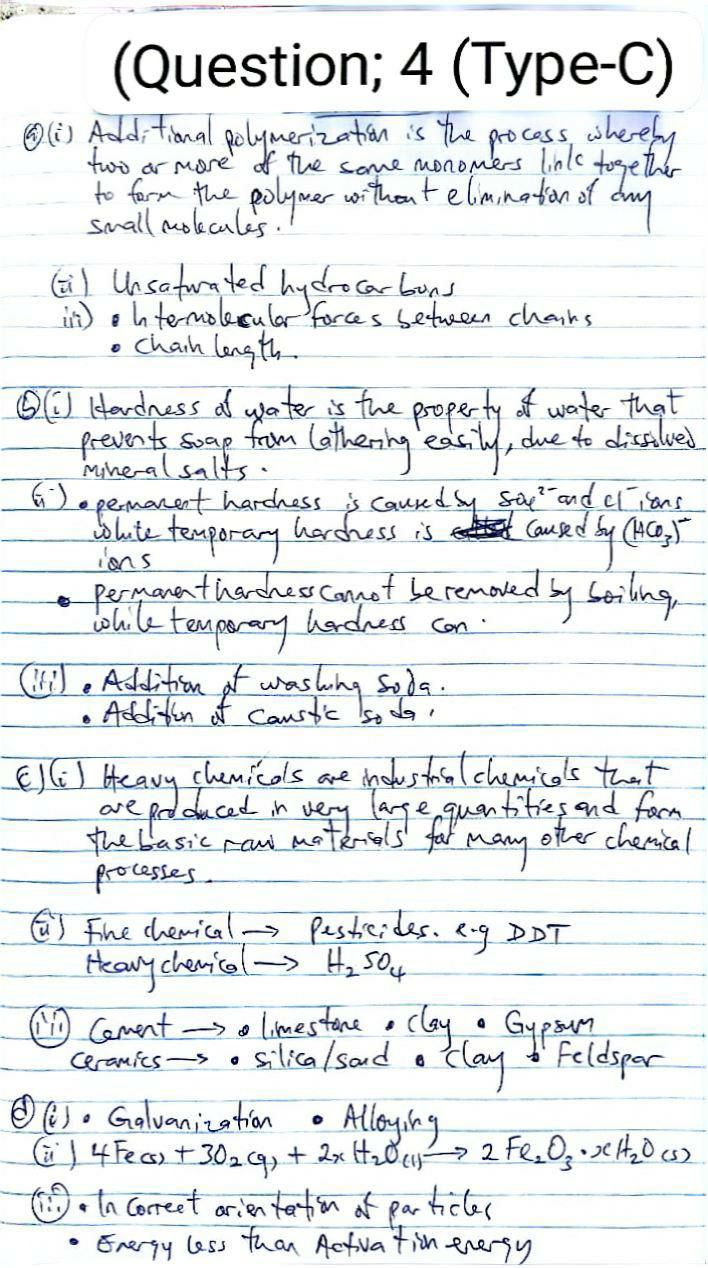 (Question; 4 (Type-C)
(a)(i) Additional polymerization is the process whereby
two or more of the same monomers link together
to form the polymer without elimination of any
small molecules.
(ii) Unsaturated hydrocarbons
iii) • Intermolecular forces between chains
• Chain length.
(b)(i) Hardness of water is the property of water that
prevents soap from lathering easily, due to dissolved
mineral salts.
(ii) • permanent hardness is caused by SO₄²⁻ and Cl⁻ ions
while temporary hardness is caused by (HCO₃)⁻
ions
• permanent hardness cannot be removed by boiling,
while temporary hardness can.
(iii) • Addition of washing soda.
• Addition of caustic soda.
c)(i) Heavy chemicals are industrial chemicals that
are produced in very large quantities and form
the basic raw materials for many other chemical
processes.
(ii) Fine chemical → Pesticides. e.g DDT
Heavy chemical → H₂SO₄
(iii) Cement → • limestone • clay • Gypsum
Ceramics → • silica/sand • clay • Feldspar
(d)(i) • Galvanization • Alloying
(ii) 4Fe(s) + 3O₂(g) + 2xH₂O(l) → 2Fe₂O₃·xH₂O(s)
(iii) • Incorrect orientation of particles
• Energy less than Activation energy